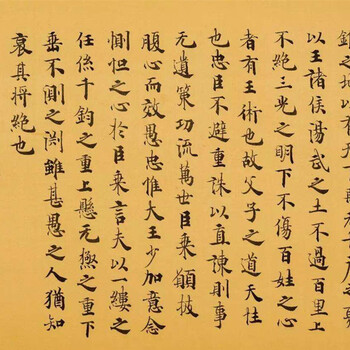 之地以有天下
以王諸侯湯武之土不過百里上
不絕三光之明下不傷百姓之心
者有王術也故父子之道天性
也忠臣不避重誅以直諫則事
无遺策功流萬世臣乘願披
腹心而效愚忠惟大王少加意念
惻怛之心於臣乘言夫以一縷之
任係千鈞之重上懸无極之重下
垂不測之渊雖甚愚之人猶知
哀其将絕也